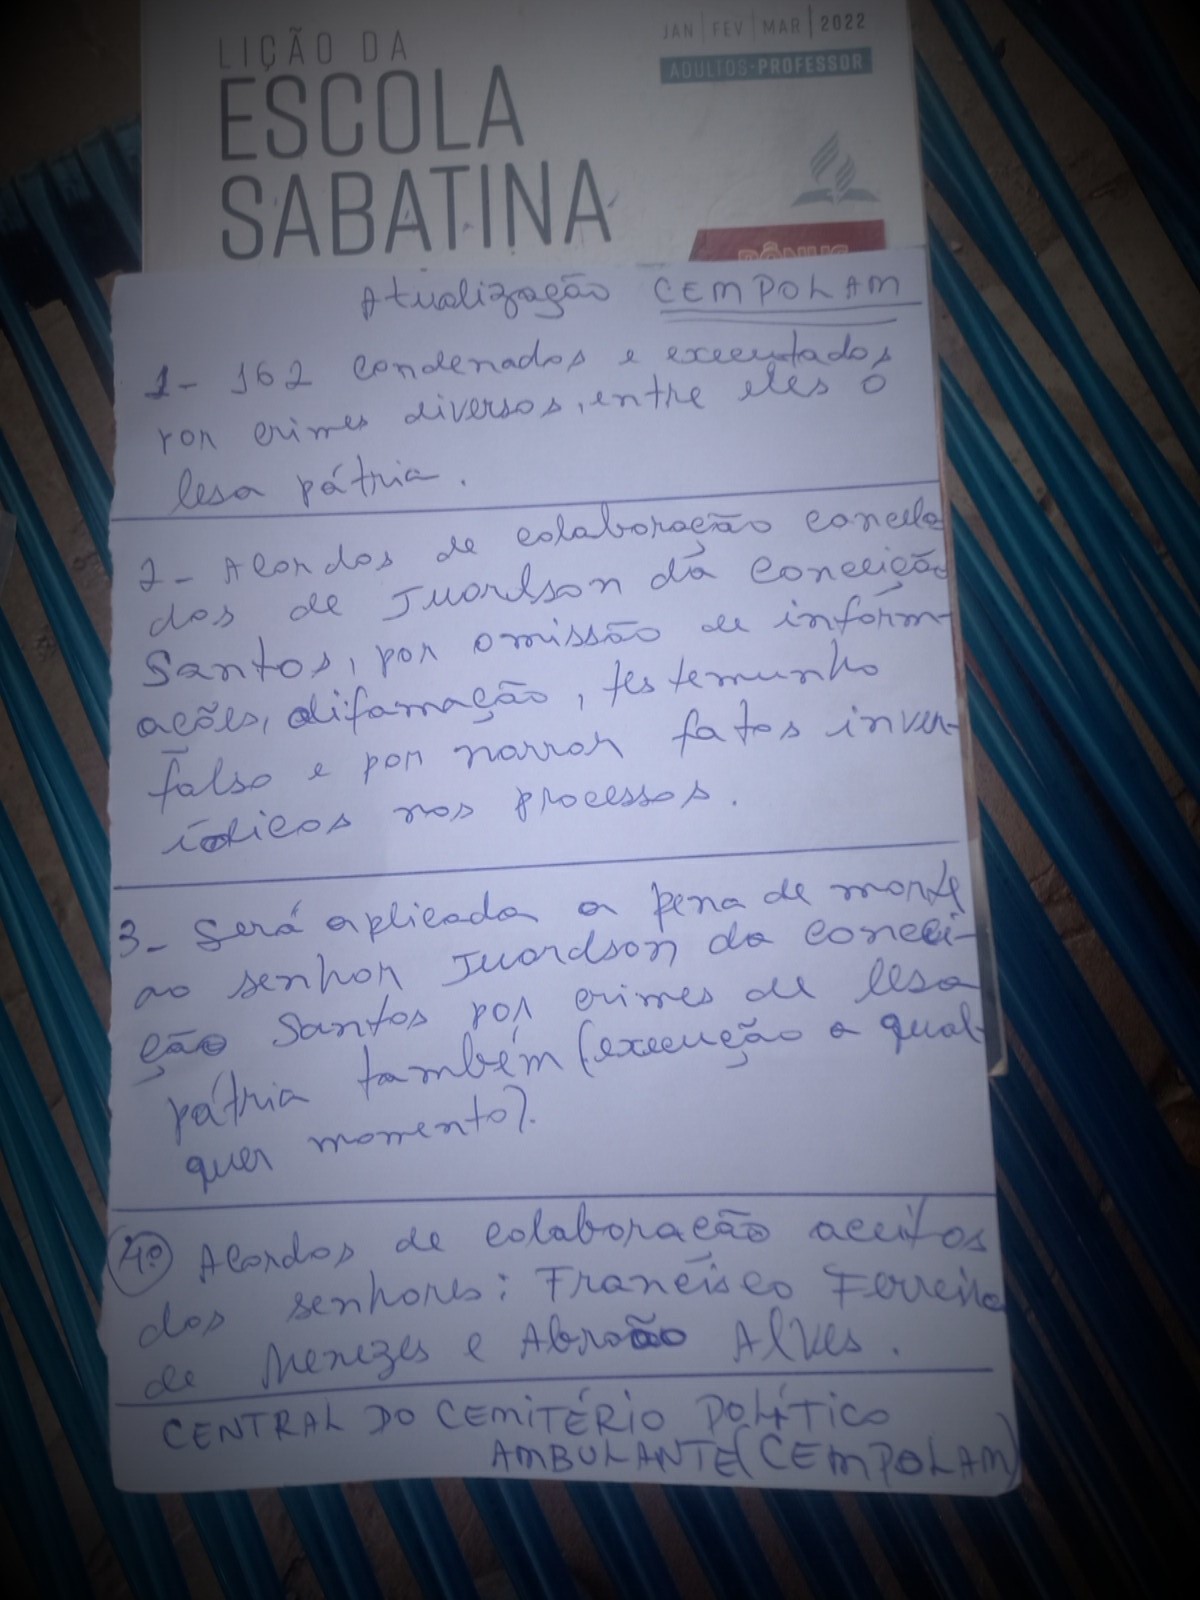 LIÇÃO DA
ESCOLA
SABATINA
JAN | FEV | MAR | 2022
ADULTOS-PROFESSOR
BÔNUS
Atualização CEMPOLAM
1- 162 condenados e executados
por crimes diversos, entre eles o
lesa pátria.
2- Acordos de colaboração cancela
dos de Juardson da Conceição
Santos, por omissão de inform-
ações, difamação, testemunho
falso e por narrar fatos inver-
ídicos nos processos.
3- Será aplicada a pena de morte
ao senhor Juardson da concei-
ção Santos por crimes de lesa
pátria também (execução a qual-
quer momento).
4º Acordos de colaboração aceitos
dos senhores: Francisco Ferreira
de Menezes e Abraão Alves.
CENTRAL DO CEMITÉRIO POLÍTICO
AMBULANTE (CEMPOLAM)